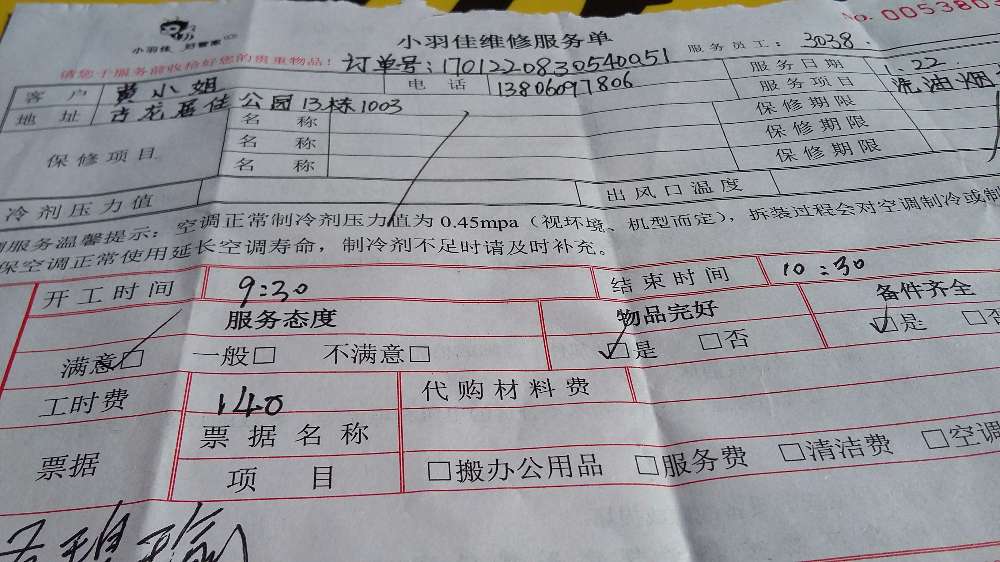 小羽佳 好管家 No. 005380
小羽佳维修服务单
服务员工：3038
请您于服务前收拾好您的贵重物品！ 订单号：1701220830540051 服务日期 1.22
客户 黄小姐 电话 13806097806 服务项目 洗油烟
地址 古龙居住公园13栋1003 保修期限
保修项目 名称 保修期限
名称 保修期限
名称
冷剂压力值 出风口温度
服务温馨提示：空调正常制冷剂压力值为0.45mpa（视环境、机型而定），拆装过程会对空调制冷或制
保空调正常使用延长空调寿命，制冷剂不足时请及时补充。
开工时间 9:30 结束时间 10:30
服务态度 物品完好 备件齐全
满意□ 一般□ 不满意□ □是 □否 □是 □否
工时费 140 代购材料费
票据 票据名称
项目 □搬办公用品 □服务费 □清洁费 □空调